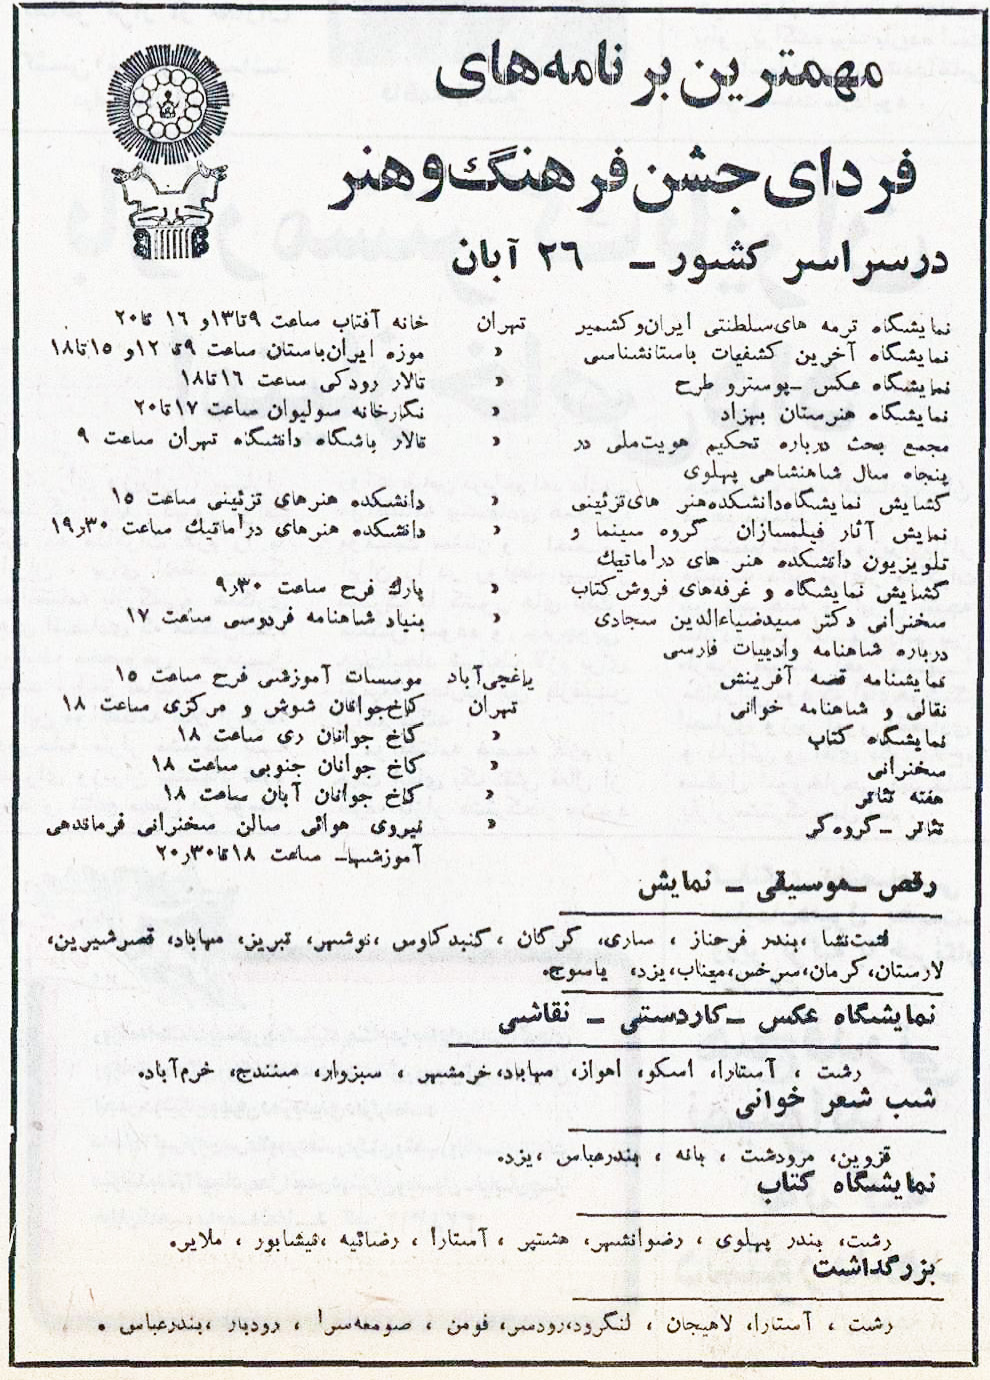 مهمترین برنامه‌های
فردای جشن فرهنگ و هنر
در سراسر کشور ـ ۲۶ آبان
نمایشگاه ترمه های سلطنتی ایران و کشمیر تهران خانه آفتاب ساعت ۹ تا ۱۳ و ۱۶ تا ۲۰
نمایشگاه آخرین کشفیات باستانشناسی » موزه ایران باستان ساعت ۹ تا ۱۲ و ۱۵ تا ۱۸
نمایشگاه عکس ـ پوستر و طرح » تالار رودکی ساعت ۱۶ تا ۱۸
نمایشگاه هنرستان بهزاد » نگارخانه سولیوان ساعت ۱۷ تا ۲۰
مجمع بحث درباره تحکیم هویت ملی در » تالار باشگاه دانشگاه تهران ساعت ۹
پنجاه سال شاهنشاهی پهلوی
گشایش نمایشگاه دانشکده هنر های تزئینی » دانشکده هنرهای تزئینی ساعت ۱۵
نمایش آثار فیلمسازان گروه سینما و » دانشکده هنرهای دراماتیک ساعت ۱۹٫۳۰
تلویزیون دانشکده هنر های دراماتیک
گشایش نمایشگاه و غرفه‌های فروش کتاب » پارک فرح ساعت ۹٫۳۰
سخنرانی دکتر سید ضیاءالدین سجادی » بنیاد شاهنامه فردوسی ساعت ۱۷
درباره شاهنامه و ادبیات فارسی
نمایشنامه قصه آفرینش یاغچی‌آباد موسسات آموزشی فرح ساعت ۱۵
نقالی و شاهنامه خوانی تهران کاخ جوانان شوش و مرکزی ساعت ۱۸
نمایشگاه کتاب » کاخ جوانان ری ساعت ۱۸
سخنرانی » کاخ جوانان جنوبی ساعت ۱۸
هفته تئاتر » کاخ جوانان آبان ساعت ۱۸
تئاتر ـ گروه کر » نیروی هوائی سالن سخنرانی فرماندهی
آموزشها ـ ساعت ۱۸ تا ۲۰٫۳۰
رقص ـ موسیقی ـ نمایش
لشت‌نشا ، بندر فرحناز ، ساری، گرگان ، گنبد کاوس ، نوشهر، تبریز، مهاباد، قصر شیرین،
لارستان، کرمان، سرخس، میناب، یزد، یاسوج.
نمایشگاه عکس ـ کاردستی ـ نقاشی
رشت ، آستارا، اسکو، اهواز، مهاباد، خرمشهر ، سبزوار، سنندج، خرم‌آباد.
شب شعر خوانی
قزوین، مرودشت ، بانه ، بندرعباس ، یزد.
نمایشگاه کتاب
رشت، بندر پهلوی ، رضوانشهر، هشتپر ، آستارا ، رضائیه ، نیشابور ، ملایر.
بزرگداشت
رشت ، آستارا، لاهیجان ، لنگرود، رودسر، فومن ، صومعه‌سرا ، رودبار ، بندرعباس .